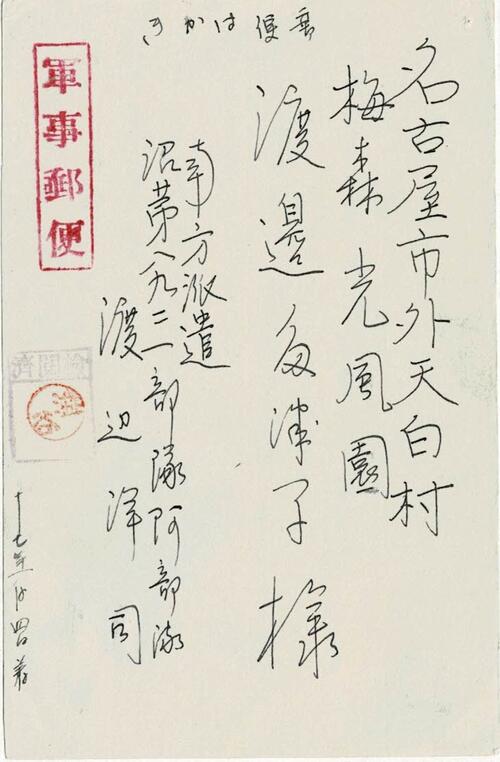 郵便はがき
名古屋市外天白村
梅森光風園
渡邊多津子様
軍事郵便
南方派遣
沼第八九三一部隊阿部隊
渡辺洋司
検閲済
十七年一月四日着